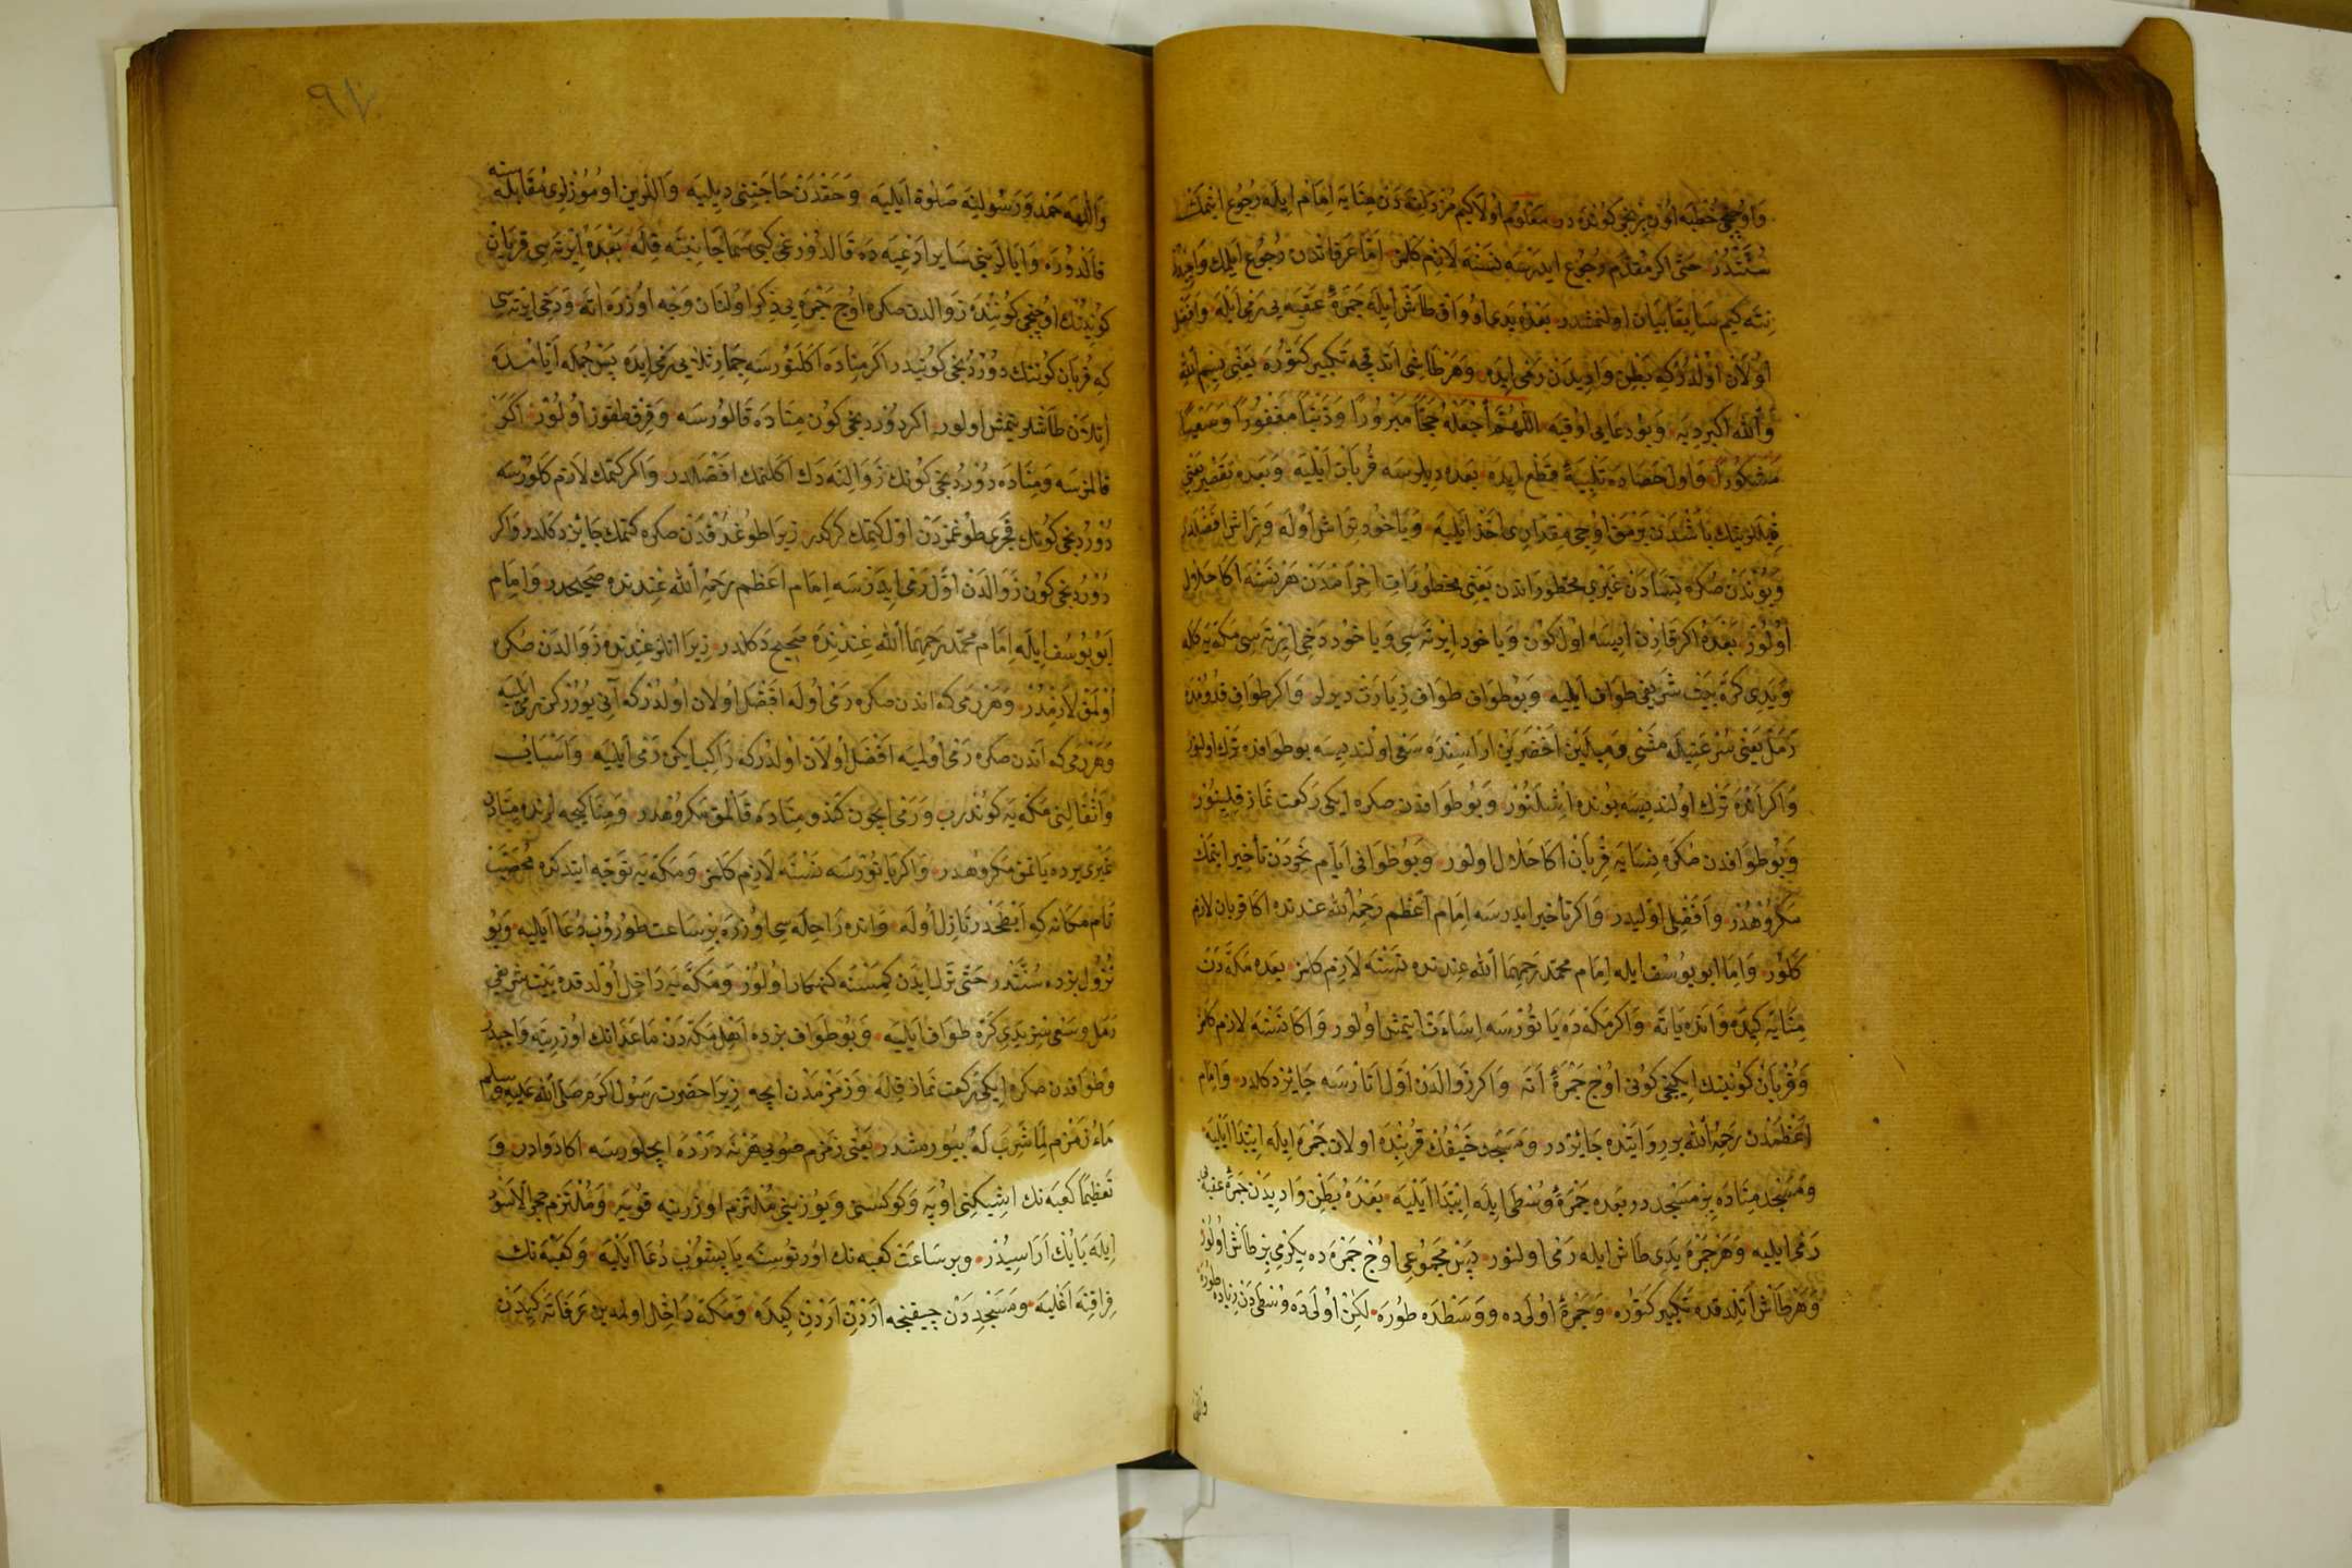 وَاوُچُنْجِى خُطْبَه اُونْ بِرِنْجِى كُونْدَه دِر مَعْلُوم اُولَاكِيم مُزْدَلِفَه دَنْ مِنَايَه اِمَام اِيلَه رُجُوع اِتْمَكْ
سُنَّتْدُرْ حَتَّى اكر مُقَدَّم رُجُوع ايدرسَه نَسْنَه لَازِم كَلْمَز امَّا عَرَفَاتدن رُجُوع ايلمك
نِتَه كيم سَابِقًا بَيَان اولنمشدر بَعْدَه يَدى اُووَاق طَاش ايله جَمْرَهٔ عَقَبَه يى رَمْى اَيْلَيَه وَافْضَل
اُولَانْ اُولْدُرْكِه بَطْنِ وَادِيدَنْ رَمْى ايدَه وَهَرْ طَاشى اَتْدقجه تَكْبِير كَتُورَه يَعْنِى بِسْمِ اللّٰه
وَاللّٰه اَكْبَر دِيَه وَبُو دعَايى اوُقيَه اللّٰهُمَّ اجْعَلْهُ حَجًّا مَبْرُورًا وَذَنْبًا مَغْفُورًا وَسَعْيًا
مَشْكُورًا وَاول حَصَادَه تَلْبِيَهٔ قَطْع ايده بعده ديلرسه قُرْبَانْ اَيْلَيَه وَبَعده تَقْصِير يَعْنِى
باشْدَنْ بَرْمَقْ اوُجى مِقْدَارى اَخْذ اَيْلَيَه وَيَاخُود تِرَاش اُولَه وَتِرَاش افْضَلدر
وَبُونْدَنْ صُكْرَه نِسَادَنْ غَيْرِى مَحْظُورَاتدن يَعْنِى مَحْظُورَاتِ اِحْرَامْدَنْ هَر نَسْنَه اكا حَلَال
اُولُورْ بَعْدَهُ اكر قَادِرْ اِيسَه اُول كُونْ وَيَاخود اِيرْتَه سِى وَيَاخُود دَخِى اِيرْتَه سى مَكَّه يَه كله
وَيَدِى كَرَّه بَيْت شَرِيفِى طَوَاف اَيْليه وَبُو طَوَاف طَوَافِ زِيَارَت ديرلر وَاكر طَوَافِ قُدُومْدَه
رَمَلْ يَعْنِى سُرْعَتِيلَه مَشْى وَمِيلَيْن اَخْضَرَيْن اراسِنْدَه سَعْى اولنديسه بو طوافده تَرْك اولنور
وَاكر اَنْدَه تَرْك اوُلنديسَه بُونده اِشْلَنُورْ وَبُو طَوَافدَن صكره ايكى رَكعت نَمَاز قِلِينُورْ
وَبُو طَوَافدن صُكْرَه نِسَايَه قُرْبَان اكا حَلَال اولور وَبُو طَوَافى اَيَّامِ نَحِرْدَنْ تأخير ايتمك
مَكْرُوهْدُرْ وَافْضَلِى اَوَّليدر وَاكر تأخير ايدرسَه اِمَام اَعْظَم رَحِمَهُ اللّٰه عندنده اكا قربان لازم
كَلُورْ وَامَّا ابو يوُسُف ايله اِمَام مُحَمَّد رَحِمَهُمَا اللّٰه عِنْدنده نَسْنَه لَازِم كلمز بعده مَكَّه دَنْ
مِنَايَه كِيدَه وَانده يَاتَه وَاكر مَكّه دَه يَاتُورْسَه اِسَاءَت ايتمش اولور وَاكا نَسْنَه لازم كلمز
وَقُرْبَانْ كُونِينك اِيكنجى كُونى اُوُچ جَمْرَهٔ اَتَه وَاكر زَوَالدَنْ اَوَّل اَتَارْسَه جَائِز دكلدر وَامَام
اَعْظَمْدَنْ رَحِمَهُ اللّٰه بر رِوَايَتده جَائِزدر وَمَسْجِد خَيْفُك قُرْبِنده اولان جَمْرَه ايله اِبْتِدَا اَيْلَيَه
وَمَسْجِد مِنَادَه بِر مَسْجِددر بَعده جَمْرَهٔ وُسْطَى ايله اِبْتِدَا اَيْلَيَه بَعْدَهُ بَطْنِ وَادِيدَنْ جَمْرَهٔ عَقَبَه يى
رَمْى ايليه وَهَرْ جَمْرَه يَدِى طَاش ايله رَمْى اولنور پَسْ مَجْمُوعى اوُچ جَمْرَه ده يِكِرْمى بِر طَاش اُولُورْ
وَهَرْ طَاش اَتِلْدقده تَكْبِير كَتُورَه وَجَمْرَهٔ اُولَى ده وَوَسَطْدَه طُورَه لٰكِنْ اُولَى دَه وُسْطَى دَنْ زِيَاده طُورَه
وَاللّٰهه
٩٧
وَاللّٰهه حَمْد وَرَسُولِنَه صَلٰوة اَيْلَيَه وَحَقْدَنْ حَاجَتِنِى ديليَه وَاللرين اُومُوزْلرى مُقَابَلَه سنه
قَالْدُرَه وَايَالَرِينى سَايِر ادْعِيَه دَه قَالدُرْدغى كِبى سَمَا جَانِبِنَه قِلَه بَعْدَهُ اِيرْتَه سِى قربَان
كُونِنُك اوُچُنْجِى كُونِنْدَه زَوَالدن صكره اوُچ جَمْرَه يى ذِكْر اوُلنَان وَجْه اوُزَرَه اتَه وَدَخِى ايرْتَه سى
كه قُرْبَان كُونِنك دُورْدُنجى كُونيدر اكر مِنَادَه اكْلَنُورسَه جِمَارِ ثلاثى رَمْى ايده پَسْ جُمْلَه اَيَّامْدَه
اَتِلَانْ طَاشلر يتمش اولور اكر دوُرْدنجى كوُن مِنَادَه قَالورسَه وَقِرق طقوز اوُلوُر اكر
قالمزسَه وَمِنَادَه دُورْدُنجى كُونك زَوَالِنَه دَك اكلنمك افْضَلدر وَاكر كتمك لَازِم كَلورسَه
دُورْدُنجى كوُنك فَجْرى طُوغْمَزدَنْ اوّل كِتمك كركدر زيرَا طوُغْدُقدَنْ صكره كتمك جَائِز دكلدر وَاكر
دُورْدُنجى كوُن زَوَالدَنْ اَوَّل رَمْى ايدَرسَه اِمَام اَعْظَم رَحِمَهُ اللّٰه عِنْدنده صَحيحدر وَامَام
اَبُو يُوسُف ايله اِمَام مُحَمَّد رَحِمَهُمَا اللّٰه عِنْدنده صَحِيح دكلدر زيرَا انلر عندنده زَوَالدَنْ صُكره
اُولْمَق لَازِمْدُرْ وَهَرْ رَمى كه اندن صكره رَمْى اُولَه اَفْضَل اوُلان اوُلدُرْكه آنى يُورُرْكن رمى ايليه
وَهَرْ رَمى كه اندن صكره رَمْى اوُلميَه افْضَل اُولَانْ اُولدركه رَاكِب ايكن رَمْى ايليَه وَاَسْبَابْ
وَاَثْقَالِنى مَكَّه يَه كُوندرب وَرَمْى ايچون كندو مِنَادَه قَالْمَق مَكرُوهْدر وَمِنَا كيجه لرنده مِنَادَنْ
غَيْرى يرده يَاتمق مَكروُهدر وَاكر يَاتُورْسَه نَسْنَه لَازِم كَلمز وَمَكَّه يَه تَوَجُّه ايتدكده مُحَصَّبْ
نَام مَكَانَه كه اَبْطَحْدر نَازِل اُولَه وَانده رَاحِلَه سِى اوُزَرَه بِر سَاعت طُورُوبْ دُعَا ايليه وَبُو
نُزُول بزده سُنَّتدر حَتَّى تَرْك ايدَن كِمْسَنَه كنهكار اُولُورْ وَمَكَّه يَه دَاخِل اوُلدقده بَيْت شَرِيفى
رَمَل وسَعْى سِز يَدِى كَرَّه طَوَاف اَيليه وَبُو طَوَاف بزده اَهْلِ مَكّه دَنْ مَاعَدَانك اوُزرينه وَاجِبدر
وَطَوَافدن صكره ايكى رَكعت نَمَاز قِلَه وَزَمْزَمْدَن ايچه زيرَا حضرت رَسُول اكرم صَلَّى اللّٰه عَلَيْهِ وسلم
مَاءُ زَمْزَم لِمَا شُرِبَ لَهُ بيورمشدر يَعْنى زَمْزَم صُويى هَرْ نَه دَرْدَه ايچلورسَه اكا دَوادر وَ
تَعْظِيمًا كَعْبَه نك اشيكنى اوُپَه وَكوكسنى وَيُوزينى مُلْتَزَم اوزرينه قُويَه وَمُلْتَزَم حَجَرُ الْاَسْوَد
ايله بَابُك اَرَاسِيدُرْ وبر سَاعَت كَعْبَه نك اورتوُسنَه يَاپشُوب دُعَا ايليه وَكَعْبَه نك
فِرَاقِنَه اَغْليَه وَمَسْجِددَن چيقنجه اَرْدِنْ اَرْدِنْ كيدَه وَمَكَّه يَه دَاخِل اولمه ين عَرَفَاتَه كيدَنْ